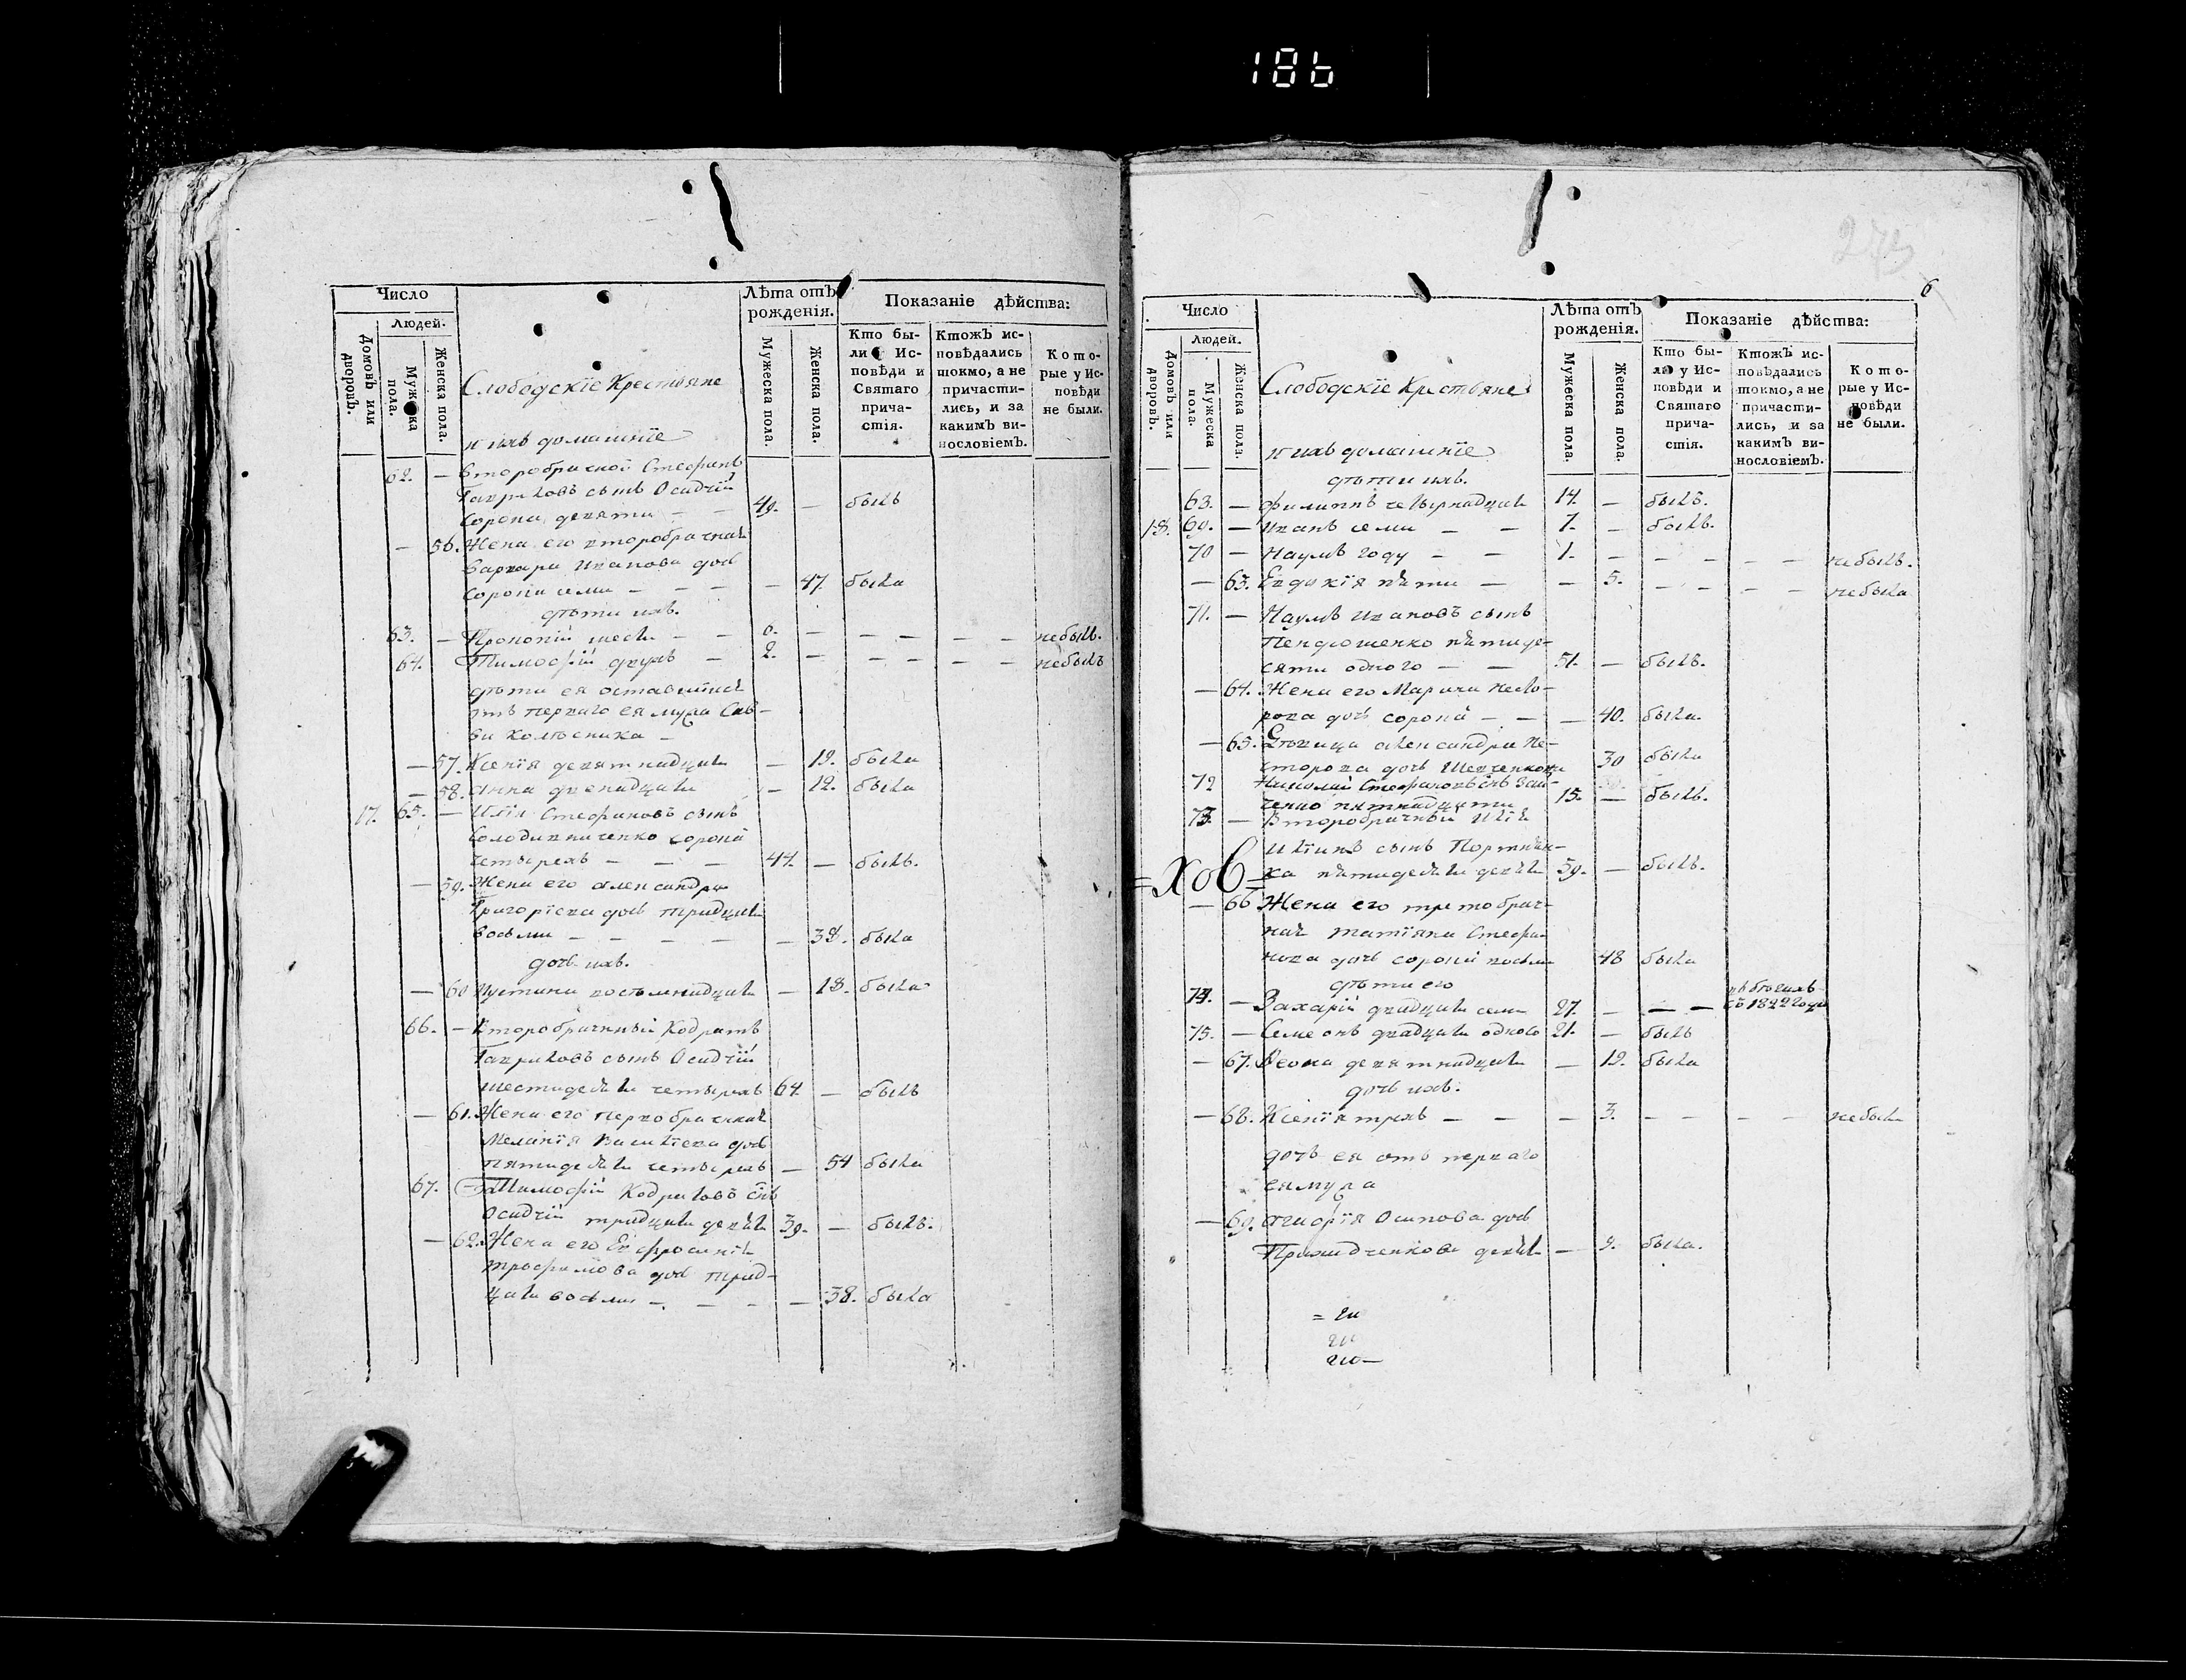 186
Число
Лѣта отъ рожденія.
Показаніе дѣйства:
Людей.
Домовъ или дворовъ.
Мужеска пола.
Женска пола.
Слободскіе Крестьяне
и ихъ домашніе
Мужеска пола.
Женска пола.
Кто были у Исповѣди и Святаго причастія.
Ктожъ исповѣдались токмо, а не причастились, и за какимъ винословіемъ.
Которые у Исповѣди не были.
62. — Второбрачной Стефанъ
Гавриловъ сынъ Осадчій
сорока девяти — — 49. — былъ
— 56. Жена его второбрачная
Варвара Иванова дочь
сорока семи — — — — 47 была
дѣти ихъ.
63. — Прокопій шести — — 6. — — — — — небылъ.
64. Тимофій двухъ — 2. — — — — — небылъ
дѣти ея оставшіися
отъ перваго ея мужа Сав-
ви Колѣсника —
— 57. Ксенія девятнадцати — 19. была
— 58. Анна двенадцати — 12. была
17. 65. — Илія Стефановъ сынъ
Солодивниченко сорока
четырехъ — — — 44. — былъ.
— 59. Жена его Александра
Григоріева дочь тридцати
восьми — — — — — 38. была
дочь ихъ.
— 60 Иустина восемнадцати — 18. была
66. — Второбрачный Кодратъ
Гавриловъ сынъ Осадчій
шестидесяти четырехъ 64 — былъ
— 61. Жена его первобрачная
Меланія Василіева дочь
пятидесяти четырехъ — 54 была
67. — Тимофій Кодратовъ снъ
Осадчій тридцати девяти 39. — былъ.
— 62. Жена его Евфросинія
Трофимова дочь трид-
цати восьми — — — — 38. была
275
6
Число
Лѣта отъ рожденія.
Показаніе дѣйства:
Людей.
Домовъ или дворовъ.
Мужеска пола.
Женска пола.
Слободскіе Крестьяне
и ихъ домашніе
Мужеска пола.
Женска пола.
Кто были у Исповѣди и Святаго причастія.
Ктожъ исповѣдались токмо, а не причастились, и за какимъ винословіемъ.
Которые у Исповѣди не были.
дѣти ихъ.
63. — Филиппъ четырнадцати 14. — былъ.
18. 69. — Иванъ семи — — 7. — былъ.
70 — Наумъ году — — 1. — — — — — небылъ.
— 63. Евдокія пяти — — 5. — — — — небыла
71. — Наумъ Ивановъ сынъ
пятиде-
сяти одного — — 51. — былъ.
— 64. Жена его Марина Несто-
рова дочь сорока — — — 40. была.
— 65. Александра Не-
сторова дочь Шевченкова 30 была
72 Николай Стефановъ снъ
пятнадцати 15. — былъ.
73. — Второбрачный Илія
Иліинъ сынъ Портнян-
ка пятидесяти девяти 59. — былъ.
=хов=
— 66 Жена его третобрач-
ная Татіяна Стефа-
нова дочь сорока восьми 48 была
дѣти его
74. — Захарій двадцати семи 27. — — — въ бѣгахъ съ 1822 года
75. — Семеонъ двадцати одного 21. — былъ
— 67. Ѳеона девятнадцати — 19. была
дочь ихъ.
— 68. Ксенія трехъ — — — 3. — — — — небыла
дочь ея отъ перваго
ея мужа
— 69. Агафія Осипова дочь
девяти — 9. была.